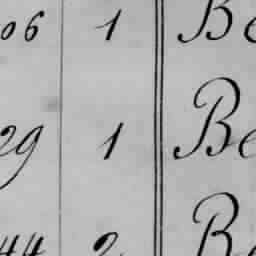 06 1 Be
29 1 Be
44 2 Be